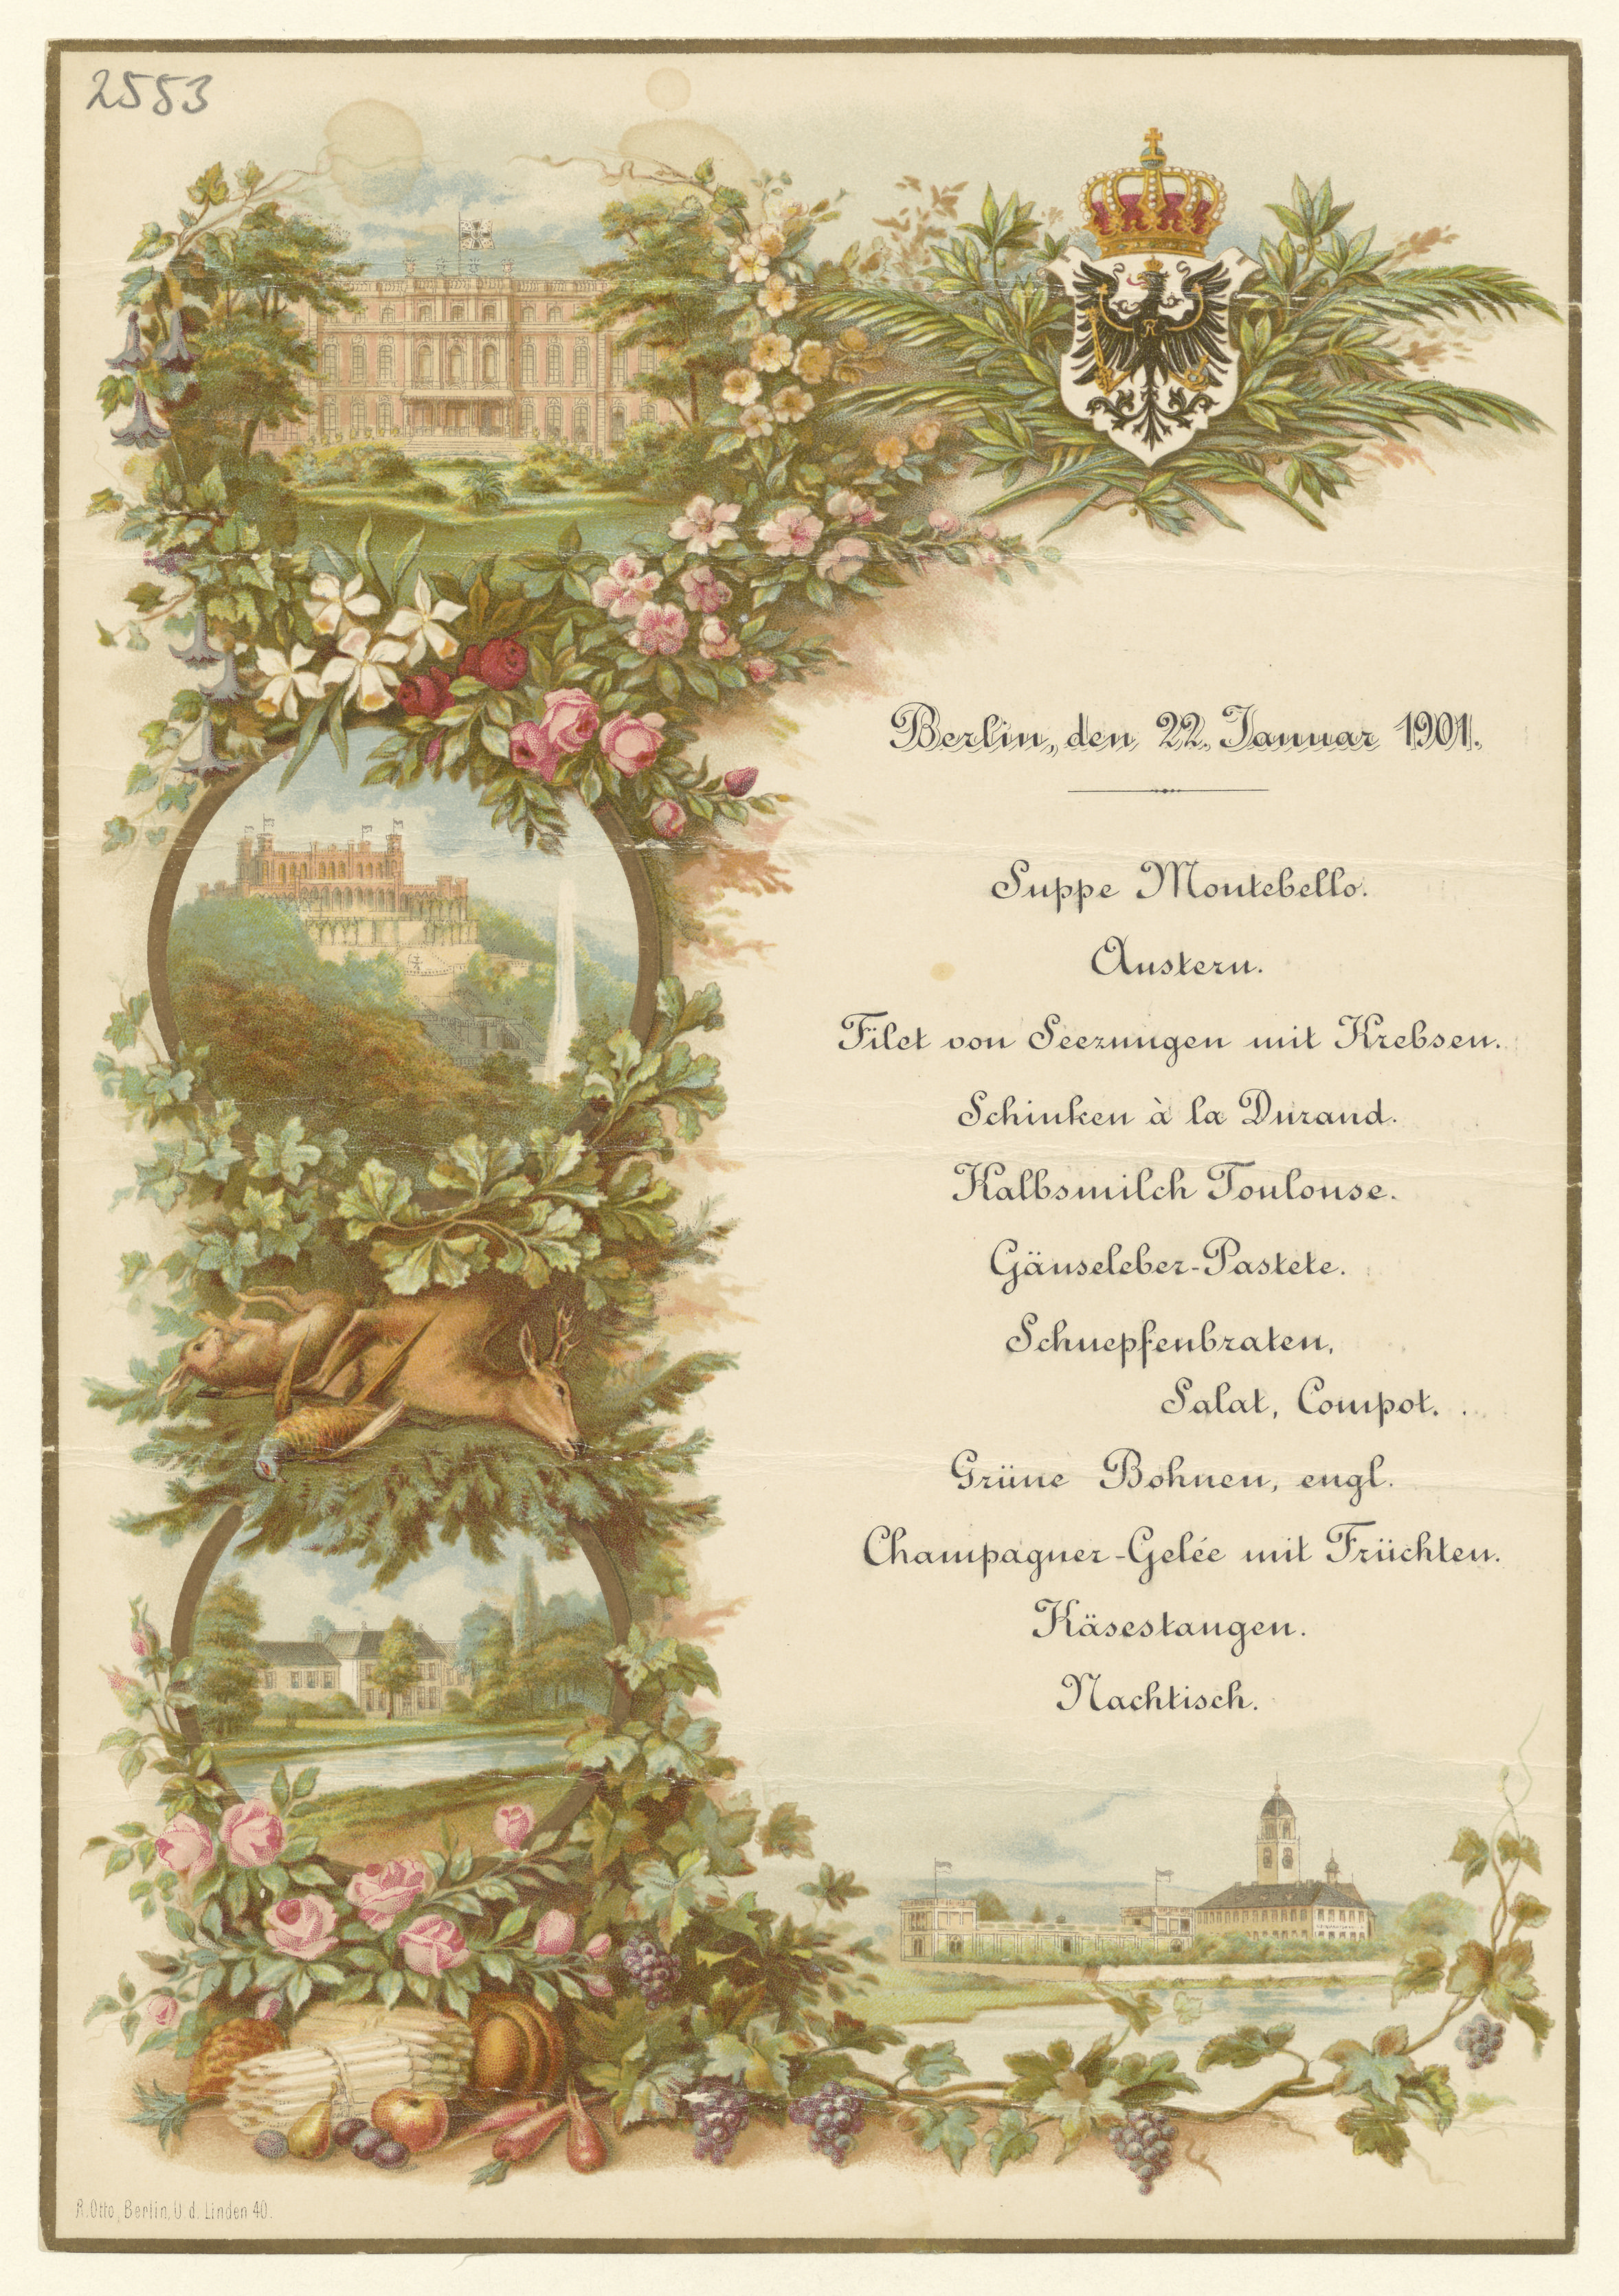 2553
R
Berlin, den 22. Januar 1901.
Suppe Montebello.
Austern.
Filet von Seezungen mit Krebsen.
Schinken à la Durand.
Kalbsmilch Toulouse.
Gänseleber-Pastete.
Schnepfenbraten,
Salat, Compot.
Grüne Bohnen, engl.
Champagner-Gelée mit Früchten.
Käsestangen.
Nachtisch.
R. Otto, Berlin, U. d. Linden 40.